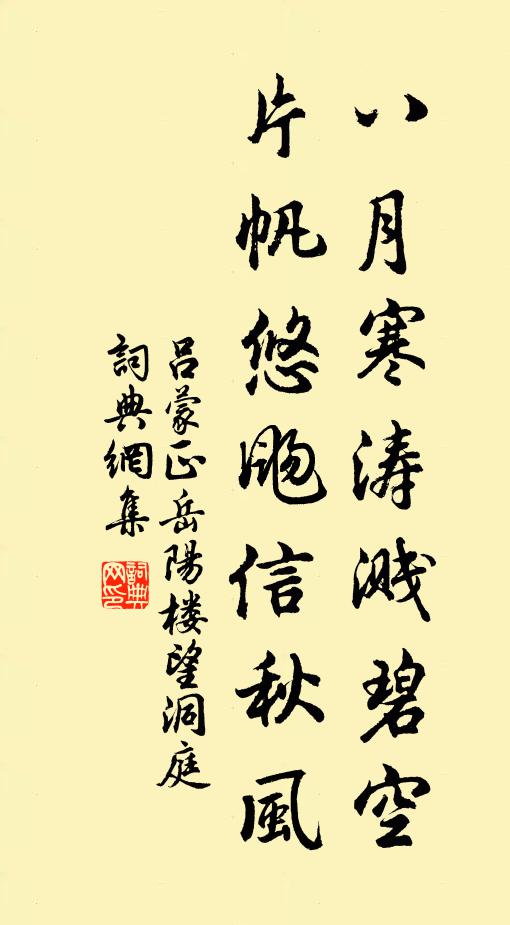 八月寒涛濺碧空
片帆悠颺信秋風
吕蒙正岳陽楼望洞庭
詞典網集
詞典網印